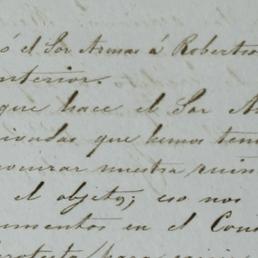 ó el Sor Armas á Roberts
nterior.
que hace el Sor Ar
ivadas que hemos ten
ocurar nuestra ruin
el objeto; eso nos
umentos en el Con